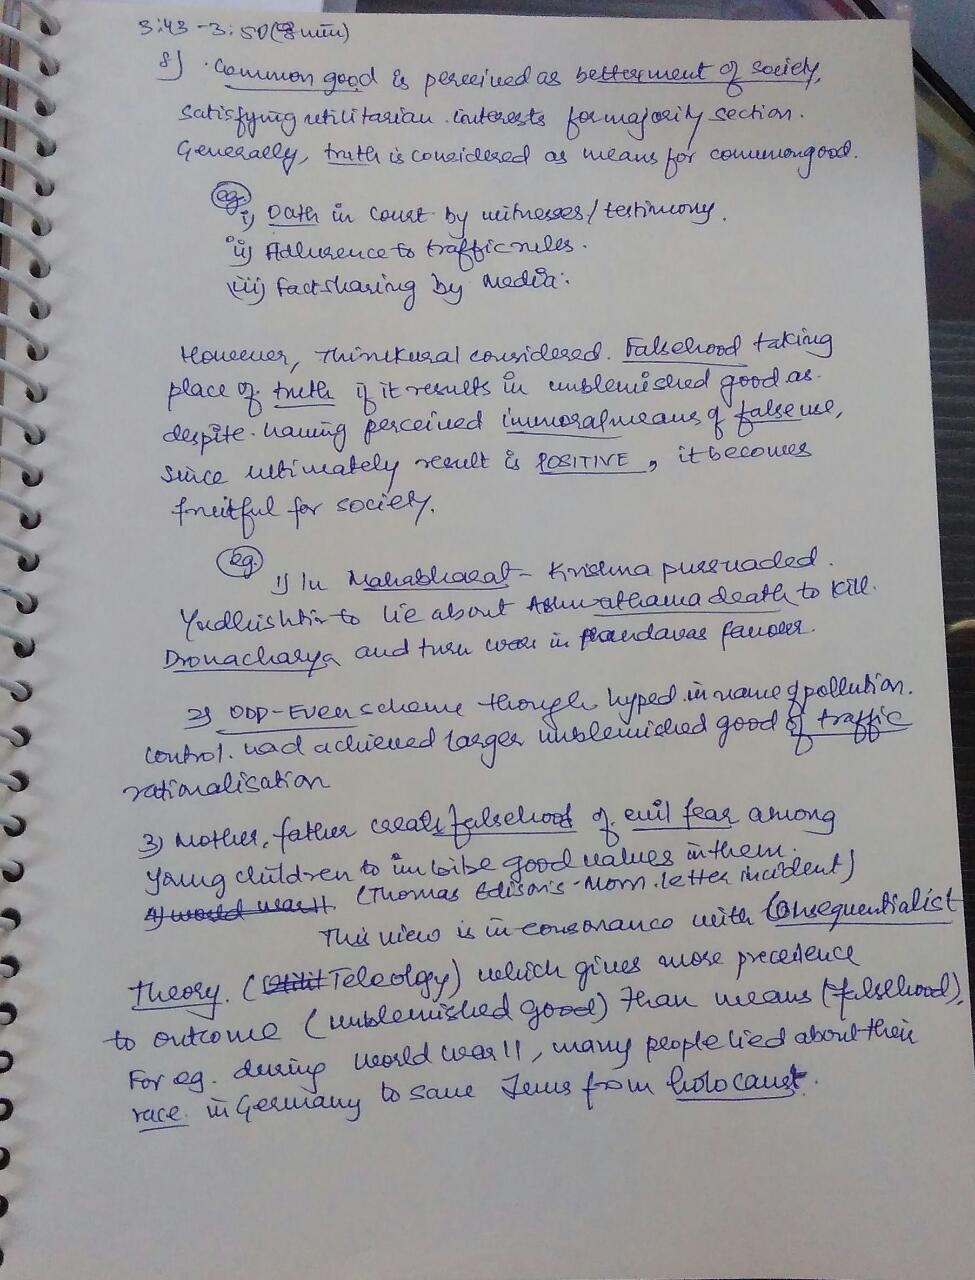 3:43 - 3:50 (8 min)
8) Common good is perceived as betterment of society,
satisfying utilitarian interests for majority section.
Generally, truth is considered as means for common good.
eg.
i) Oath in court by witnesses/testimony.
ii) Adherence to traffic rules.
iii) fact sharing by Media.
However, Thirukural considered Falsehood taking
place of truth if it results in unblemished good as
despite having perceived immoral means of false use,
since ultimately result is POSITIVE, it becomes
fruitful for society.
eg.
1) In Mahabharat - Krishna pursuaded
Yudhishtir to lie about Ashwathama death to kill
Dronacharya and turn war in Pandavas favour.
2) ODD-Even scheme though hyped in name of pollution
control had achieved larger unblemished good of traffic
rationalisation
3) Mother, father create falsehood of evil fear among
young children to imbibe good values in them.
4) World War II. (Thomas Edison's - Mom letter incident)
This view is in consonance with Consequentialist
Theory. (Teleology) which gives more precedence
to outcome (unblemished good) than means (falsehood).
For eg. during World War II, many people lied about their
race in Germany to save Jews from holocaust.